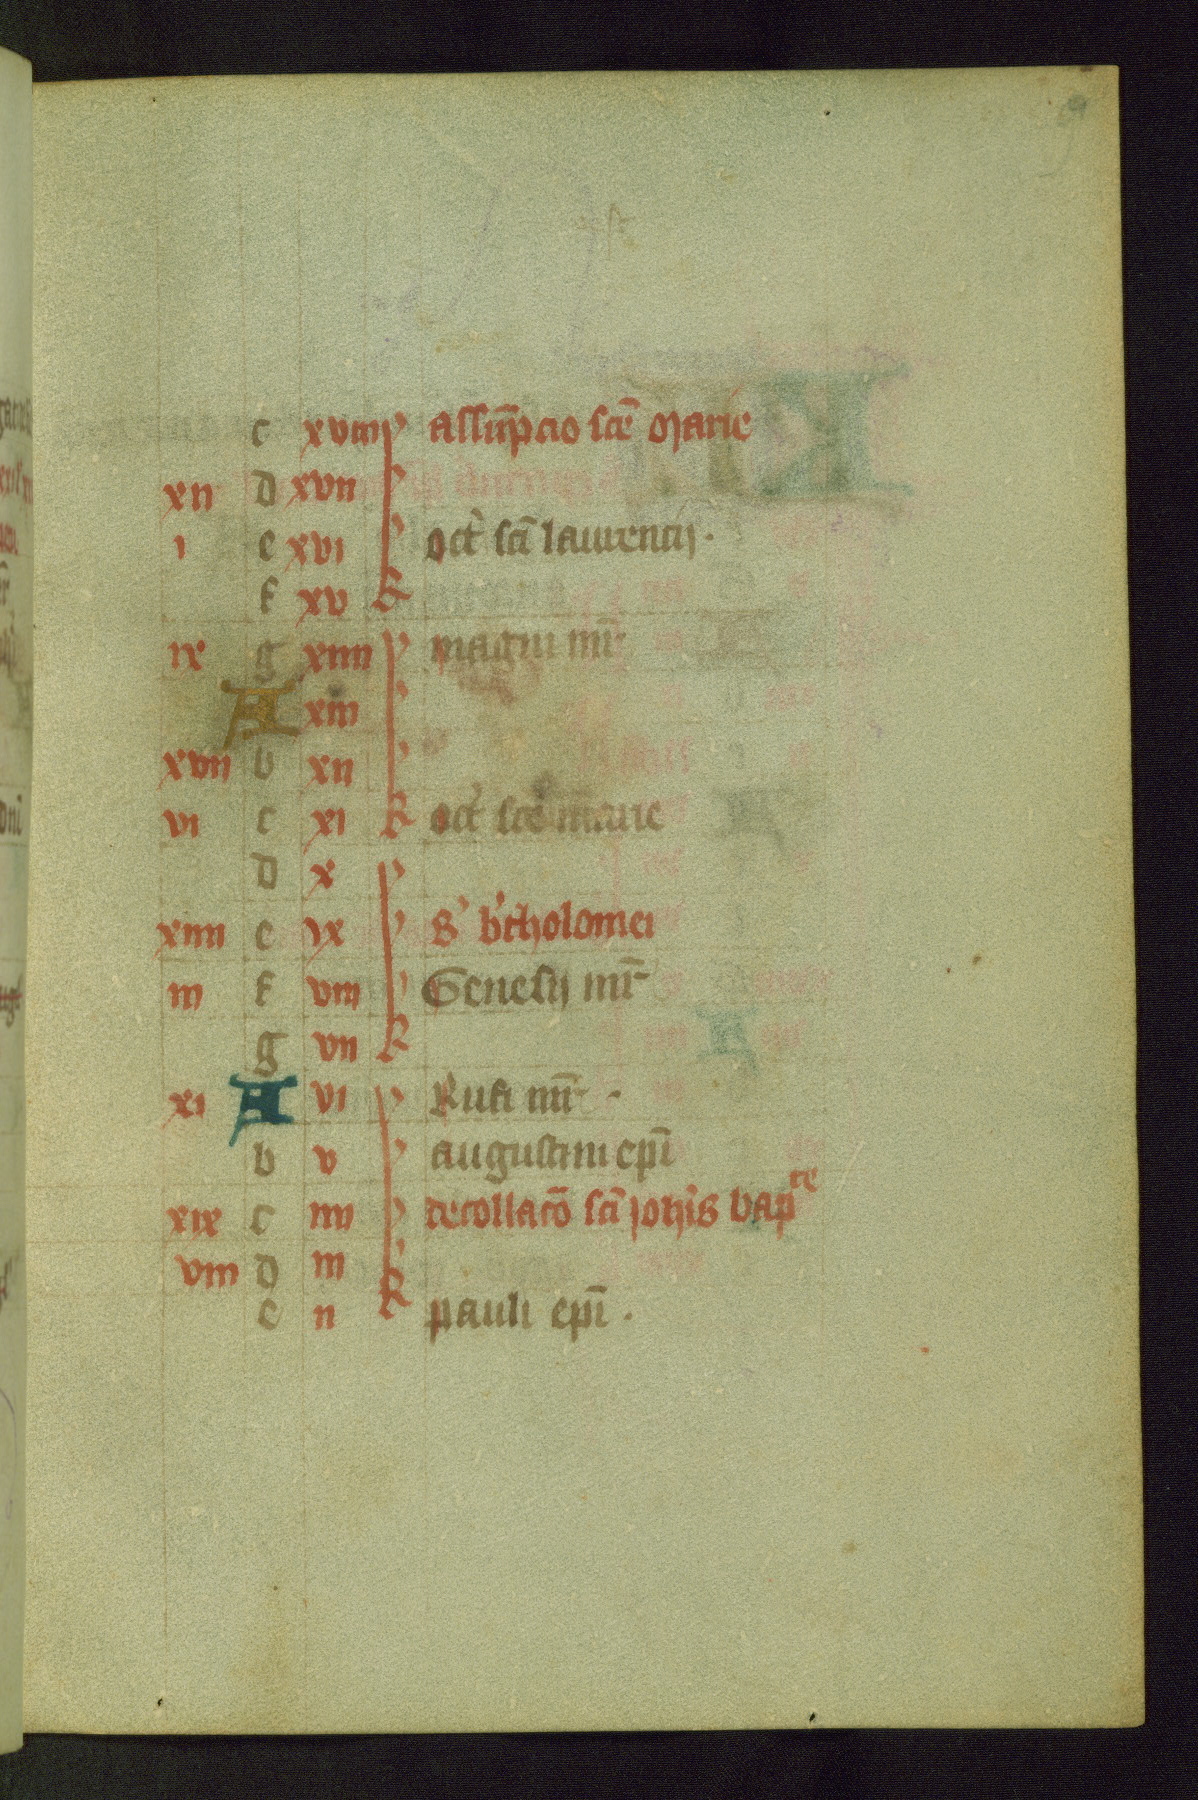 c xviii assūpcio scē Marie
xii d xvii
i e xvi oct̄ scī laurencij.
f xv
ix g xiiii magni mr̄
A xiii
xvii b xii
vi c xi oct̄ scē marie
d x
xiiii e ix S' b'tholomei
iii f viii Genesij mr̄
g vii
xi A vi Rufi mr̄ .
b v augustini ep̄i
xix c iiii decollacō scī ioh'is bapte
viii d iii
e ii pauli ep̄i .